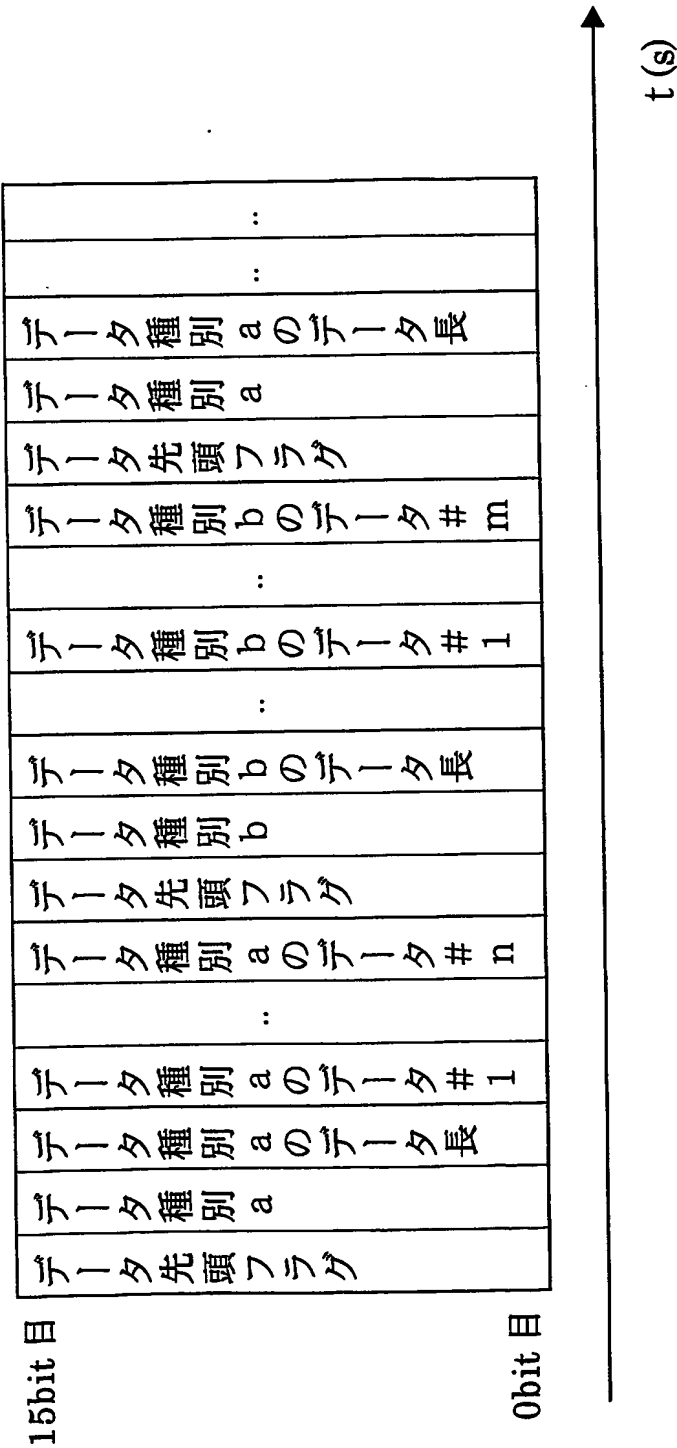 15bit 目
0bit 目
データ先頭フラグ
データ種別 a
データ種別 a のデータ長
データ種別 a のデータ＃1
‥
データ種別 a のデータ＃n
データ先頭フラグ
データ種別 b
データ種別 b のデータ長
‥
データ種別 b のデータ＃1
‥
データ種別 b のデータ＃m
データ先頭フラグ
データ種別 a
データ種別 a のデータ長
‥
‥
t (s)